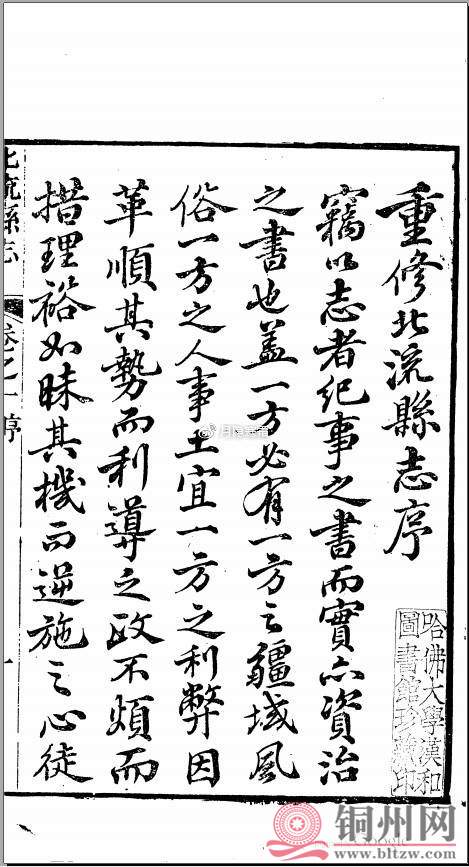 重修北流縣志序
竊以志者紀事之書而實亦資治
之書也蓋一方必有一方之疆域風
俗一方之人事土宜一方之利弊因
革順其勢而利導之政不煩而
措理裕如昧其機而逆施之心徒
北流縣志 卷之一序 一
哈佛大學漢和
圖書館珍藏印
铜州网
www.bltzw.com